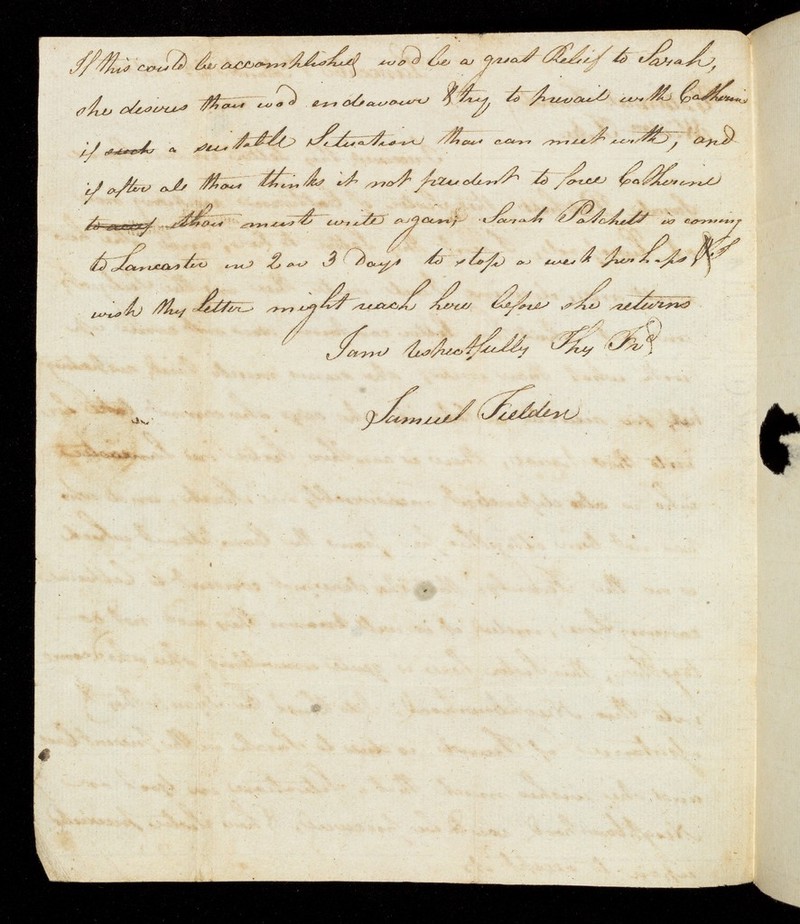 If this could be accomplished wod be a great Relief to Sarah,
she desires thou wod endeavour & try to prevail with Catherine
if such a suitable Situation thou can meet with, and
if after all thou thinks it not prudent to force Catherine
thou must write again, Sarah Patchett is coming
to Lancaster in 2 or 3 Days to stop a week perhaps & I
wish thy Letter might reach here before she returns
I am respectfully Thy Frd
Samuel Fielden